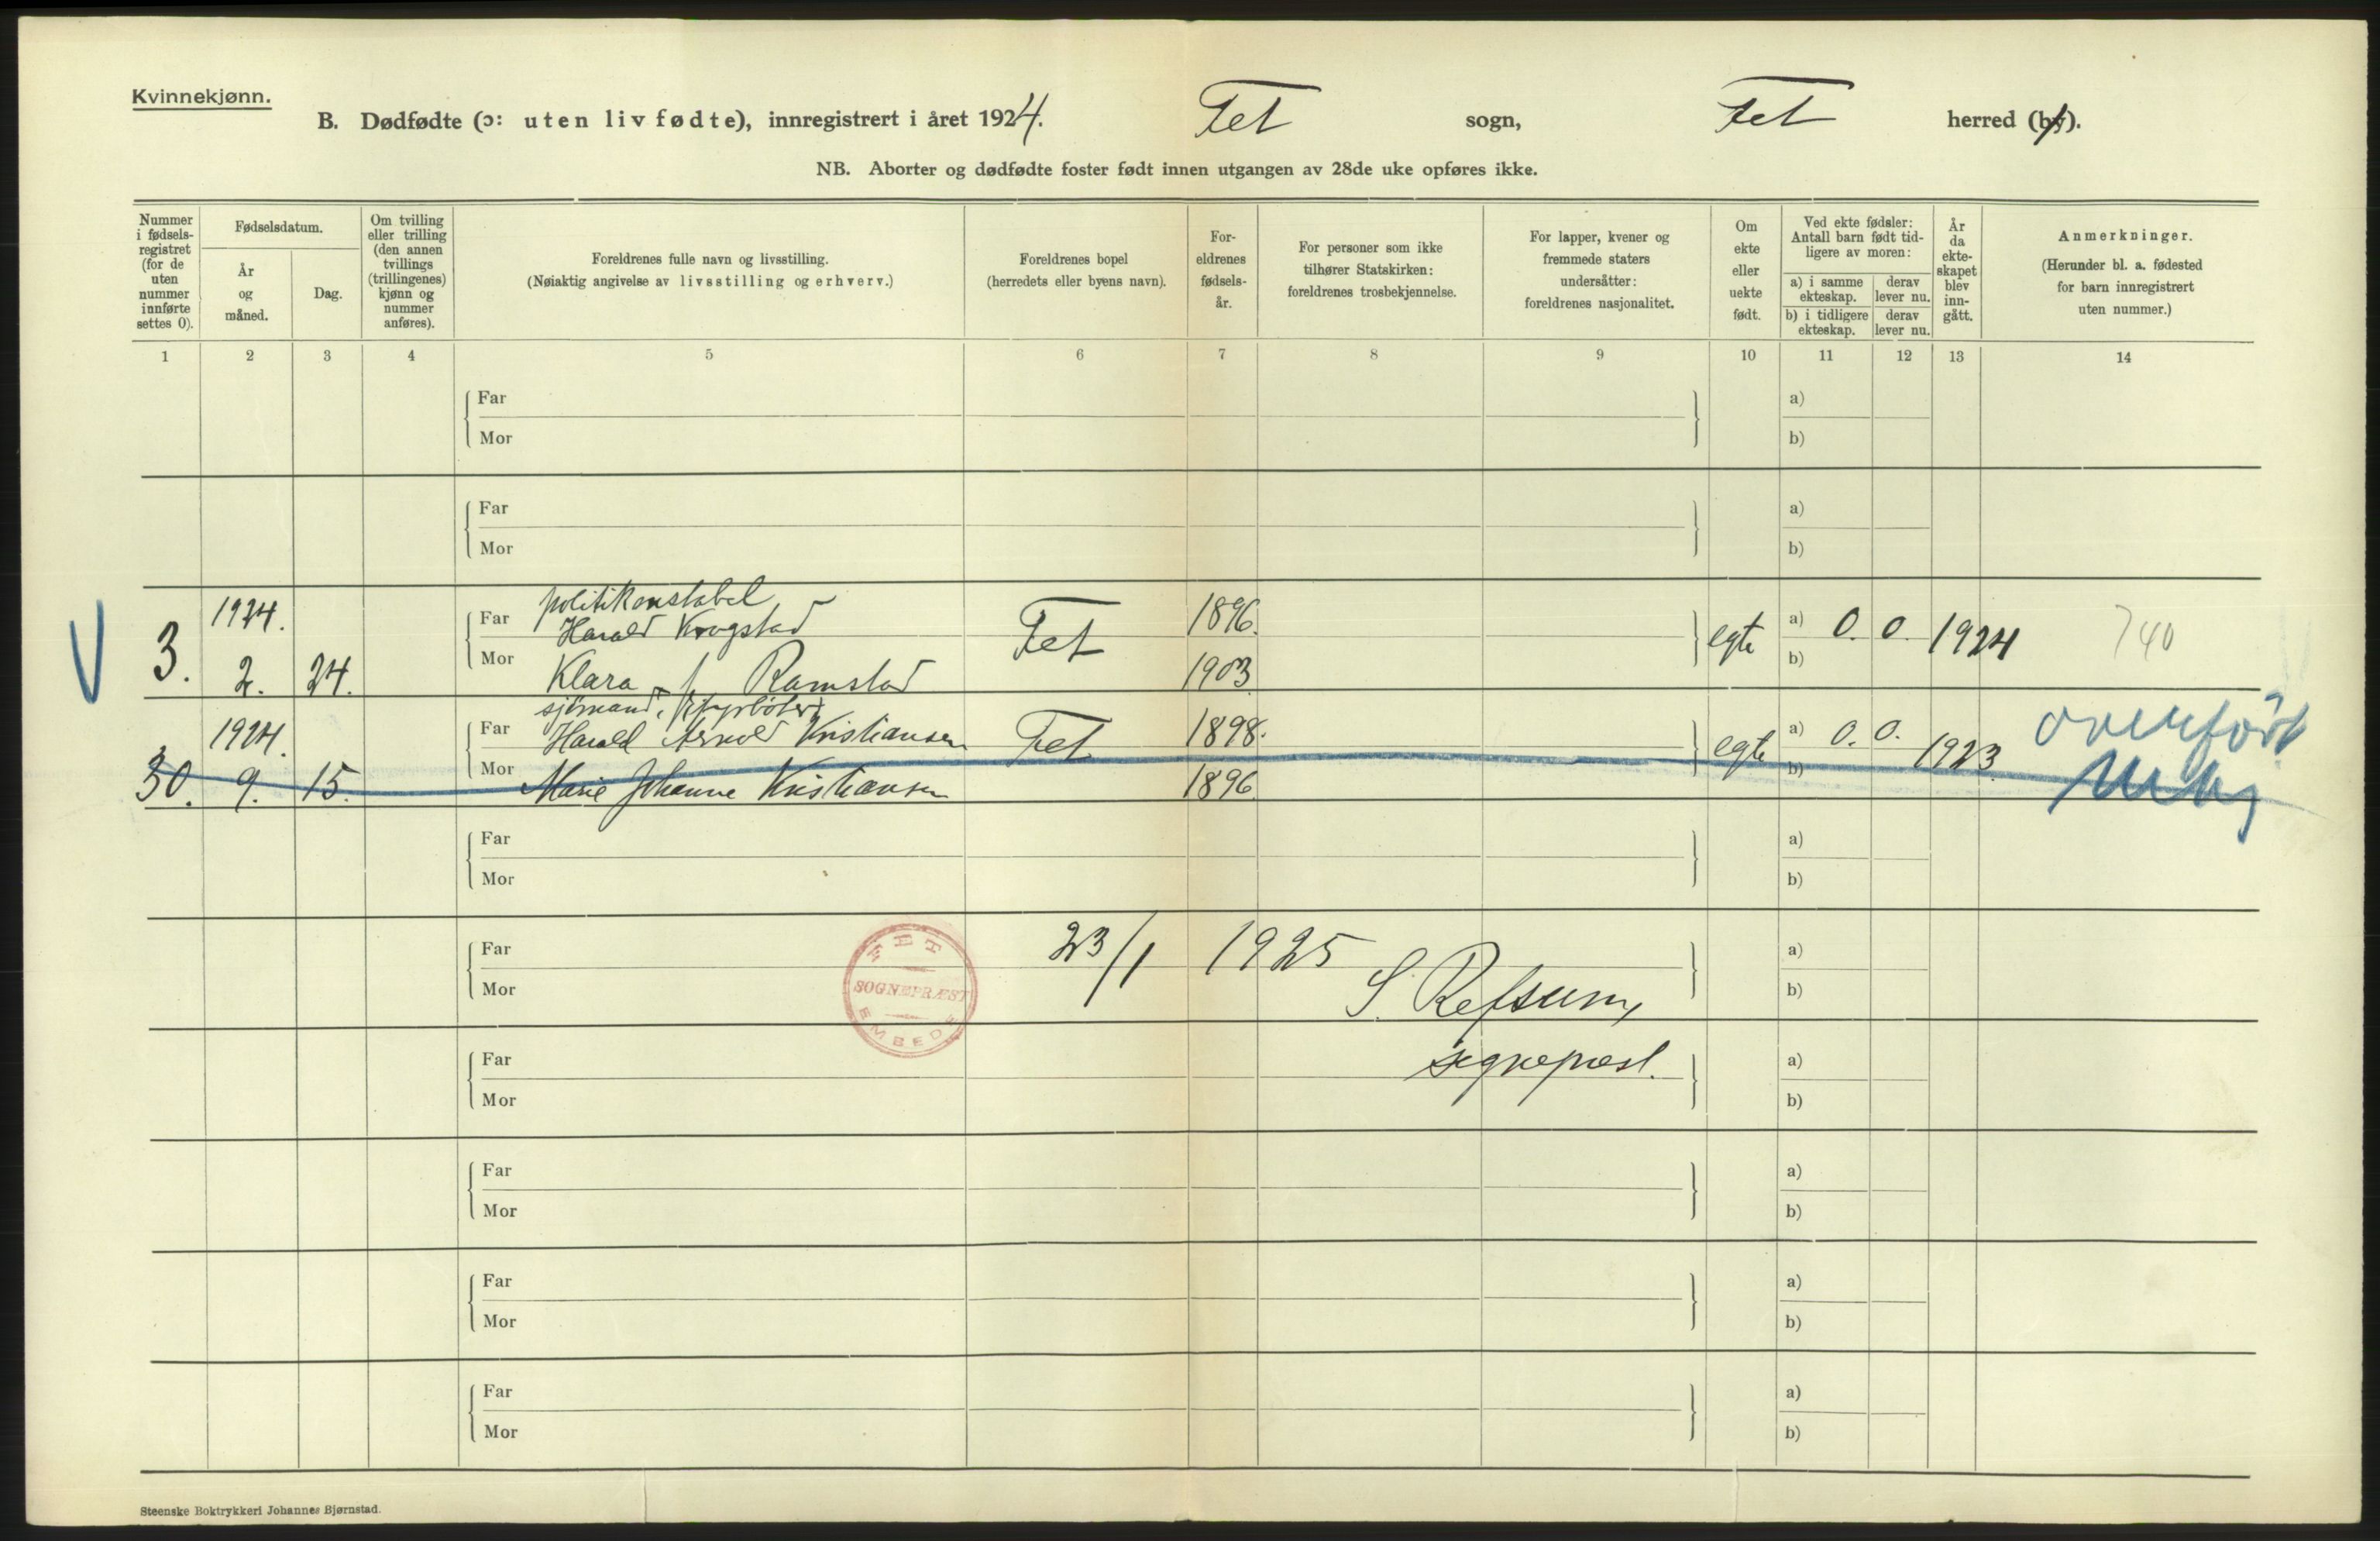 Kvinnekjønn.
B. Dødfødte (ɔ: uten liv fødte), innregistrert i året 1924. Fet sogn, Fet herred (by).
NB. Aborter og dødfødte foster født innen utgangen av 28de uke opføres ikke.
Nummer i fødsels-registret (for de uten nummer innførte settes 0).
Fødselsdatum.
År og måned.
Dag.
Om tvilling eller trilling (den annen tvillings (trillingenes) kjønn og nummer anføres).
Foreldrenes fulle navn og livsstilling.
(Nøiaktig angivelse av livsstilling og erhverv.)
Foreldrenes bopel
(herredets eller byens navn).
For-eldrenes fødsels-år.
For personer som ikke tilhører Statskirken: foreldrenes trosbekjennelse.
For lapper, kvener og fremmede staters undersåtter: foreldrenes nasjonalitet.
Om ekte eller uekte født.
Ved ekte fødsler: Antall barn født tid-ligere av moren:
a) i samme ekteskap.
derav lever nu.
b) i tidligere ekteskap.
derav lever nu.
År da ekte-skapet blev inn-gått.
Anmerkninger.
(Herunder bl. a. fødested for barn innregistrert uten nummer.)
1 2 3 4 5 6 7 8 9 10 11 12 13 14
Far a)
Mor b)
Far a)
Mor b)
politikonstabel
1924. Far Harald Krogstad Fet 1896. egte a) 0. 0. 1924 740
3. 2. 24. Mor Klara f. Ramstad 1903 b)
sjømand,
1924. Far Harald Arnold Kristiansen Fet 1898. egte a) 0. 0. 1923. overført
30. 9. 15. Mor Marie Johanne Kristiansen 1896 b)
Far a)
Mor b)
Far 23/1 1925 a)
Mor S. Refsum, b)
FET SOGNEPRÆST EMBEDE
Far sogneprest. a)
Mor b)
Far a)
Mor b)
Far a)
Mor b)
Far a)
Mor b)
Steenske Boktrykkeri Johannes Bjørnstad.